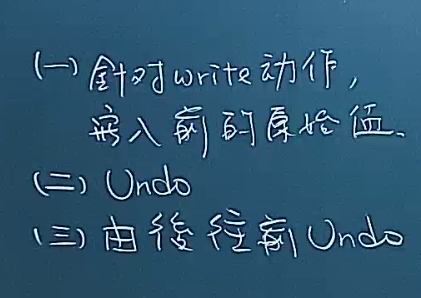 (一) 針对write动作,
寫入前的原始值.
(二) Undo
(三) 由後往前Undo